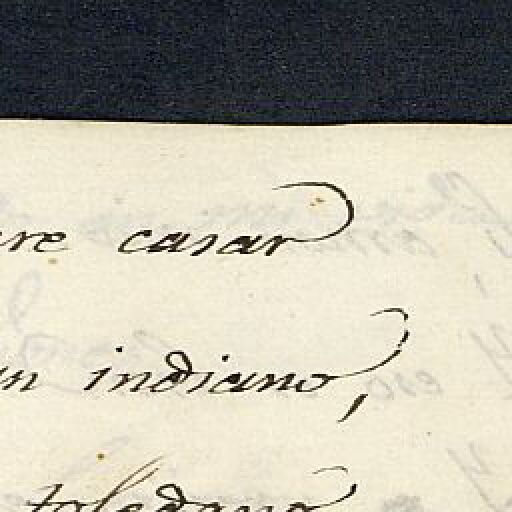 casar
un indiano,
toledano